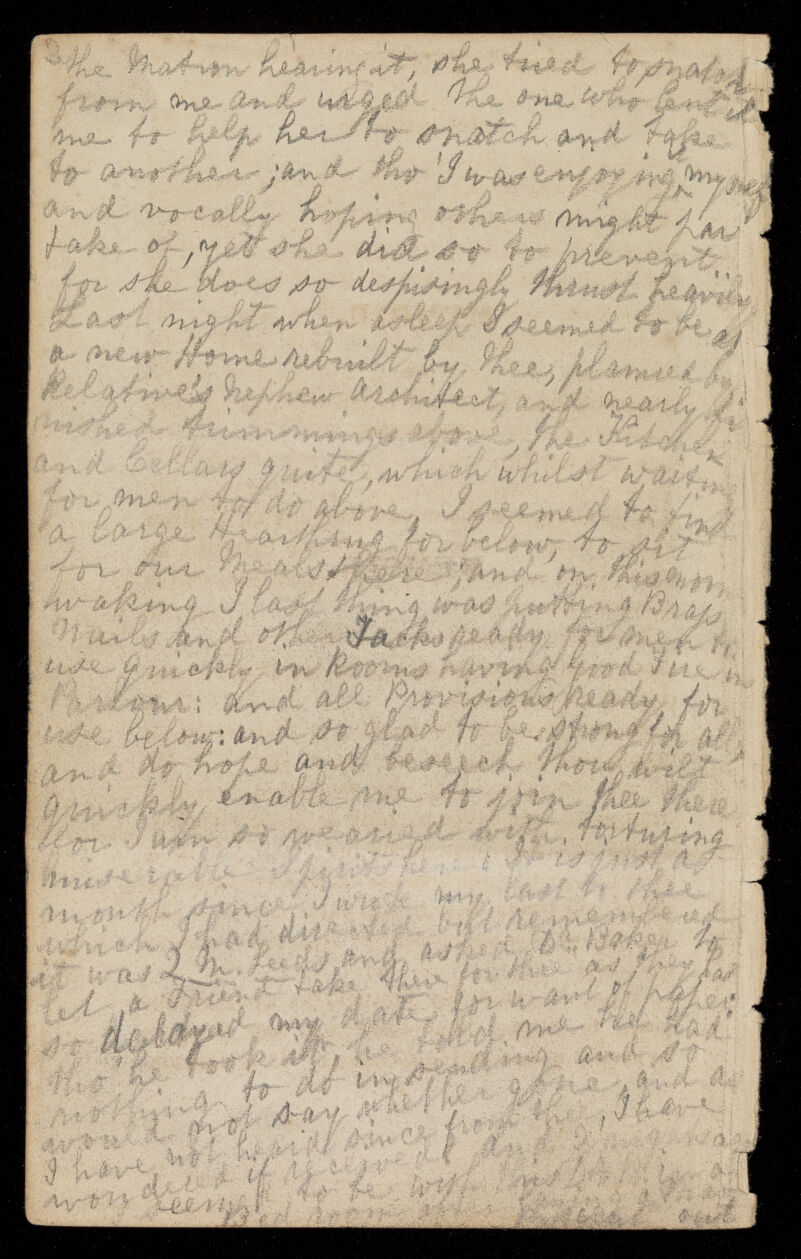 3 the Matron hearing it, she tried to snatch
from me and urged the one who lent it
me to help her to snatch and take
to another; and tho' I was enjoying myself
and vocally hoping others might par
take of, yet she did so to prevent
for she does so despisingly thrust heavily
Last night when asleep I seemed to be at
a new Home rebuilt by thee, planned by
Relative's Nephew Architect, and nearly fi
nished trimmings above, the Kitchen
and Cellars quite, which whilst waiting
for men to do above, I seemed to find
a large Hearthrug for below, to sit
for our Meals there; and on this morn
waking I last thing was putting Brass
Nails and other Tacks ready for men to
use quickly in Rooms having good Fire in
Parlour: and all Provisions Ready for
use below: and so glad to be strong for all,
and do hope and beseech thou wilt
quickly enable me to join thee there
for I am so wearied with torturing
miserable Spirits here: It is just a
month since I wrote my last to thee
which I had directed but remembered
it was Q. M. Leeds and asked Dr. Baker to
let a Friend take there for thee as they had
so delayed my date for want of paper
tho' he took it, he told me he had
nothing to do in sending and so
would not say whether gone, and as
I have not heard since from thee, I have
wondered if received! and 2 nights ago
seemed to be with
Bed room after out